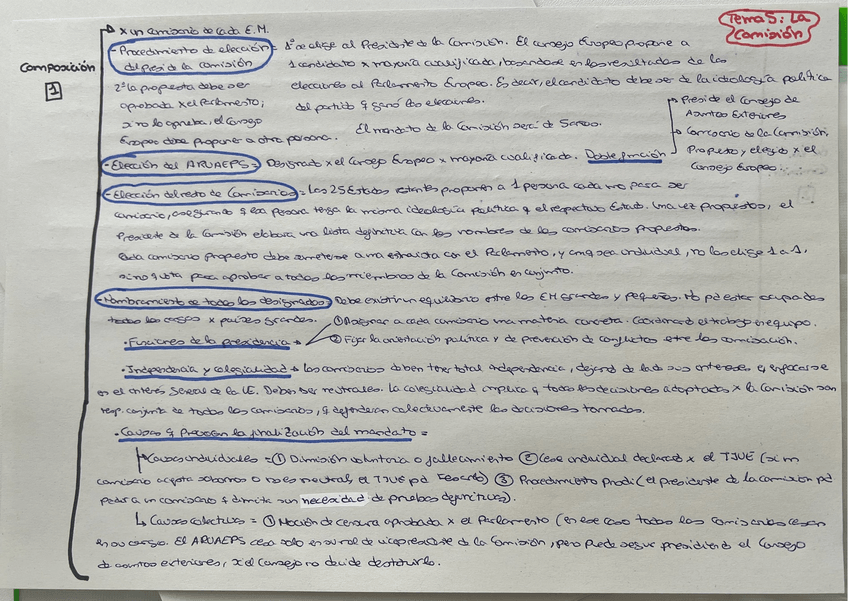 Tema 5: La
Comisión
Composición
1
x un comisario de cada E.M.
- Procedimiento de elección
del presi de la comisión
= 1º se elige al Presidente de la Comisión. El consejo Europeo propone a
1 candidato x mayoría cualificada, basandose en los resultados de las
elecciones al Parlamento Europeo. Es decir, el candidato debe ser de la ideología política
del partido q ganó las elecciones.
2º la propuesta debe ser
aprobada x el Parlamento;
si no lo aprueba, el Consejo
Europeo debe proponer a otra persona.
El mandato de la Comisión será de 5 años.
- Elección del ARUAEPS = Designado x el Consejo Europeo x mayoría cualificada. Doble función
Preside el Consejo de
Asuntos Exteriores
Comisario de la Comisión,
Propuesto y elegido x el
Consejo Europeo.
- Elección del resto de Comisarios = Los 25 Estados restantes proponen a 1 persona cada uno para ser
comisario, asegurando q esa persona tenga la misma ideología política q el respectivo Estado. Una vez propuestos, el
Presidente de la Comisión elabora una lista definitiva con los nombres de los comisarios propuestos.
Cada comisario propuesto debe someterse a una entrevista con el Parlamento, y aunq sea individual, no los elige 1 a 1,
sino q vota para aprobar a todos los miembros de la Comisión en conjunto.
- Nombramiento de todos los designados = Debe existir un equilibrio entre los EM grandes y pequeños. No pd estar ocupados
todos los cargos x países grandes.
· Funciones de la presidencia
① Asignar a cada comisario una materia concreta. Coordinando el trabajo en equipo.
② Fijar la orientación política y de prevención de conflictos entre los comisarios.
· Independencia y colegialidad → los comisarios deben tener total independencia, dejand de lado sus intereses y enfocarse
en el interés general de la UE. Deben ser neutrales. La colegialidad implica q todas las decisiones adoptadas x la Comisión son
resp. conjunta de todos los comisarios, q defenderan colectivamente las decisiones tomadas.
· Causas q provocan la finalización del mandato =
Causas individuales = ① Dimisión voluntaria o fallecimiento ② Cese individual declarado x el TJUE (si un
comisario acepta sobornos o no es neutral, el TJUE pd cesarlo) ③ Procedimiento Prodi (el presidente de la comisión pd
pedir a un comisario q dimita sin necesidad de pruebas definitivas).
Causas colectivas = ① Moción de censura aprobada x el Parlamento (en ese caso todos los comisarios cesan
en su cargo. El ARUAEPS cesa solo en su rol de vicepresidente de la Comisión, pero puede seguir presidiendo el Consejo
de asuntos exteriores, x si el Consejo no decide destituirlo.